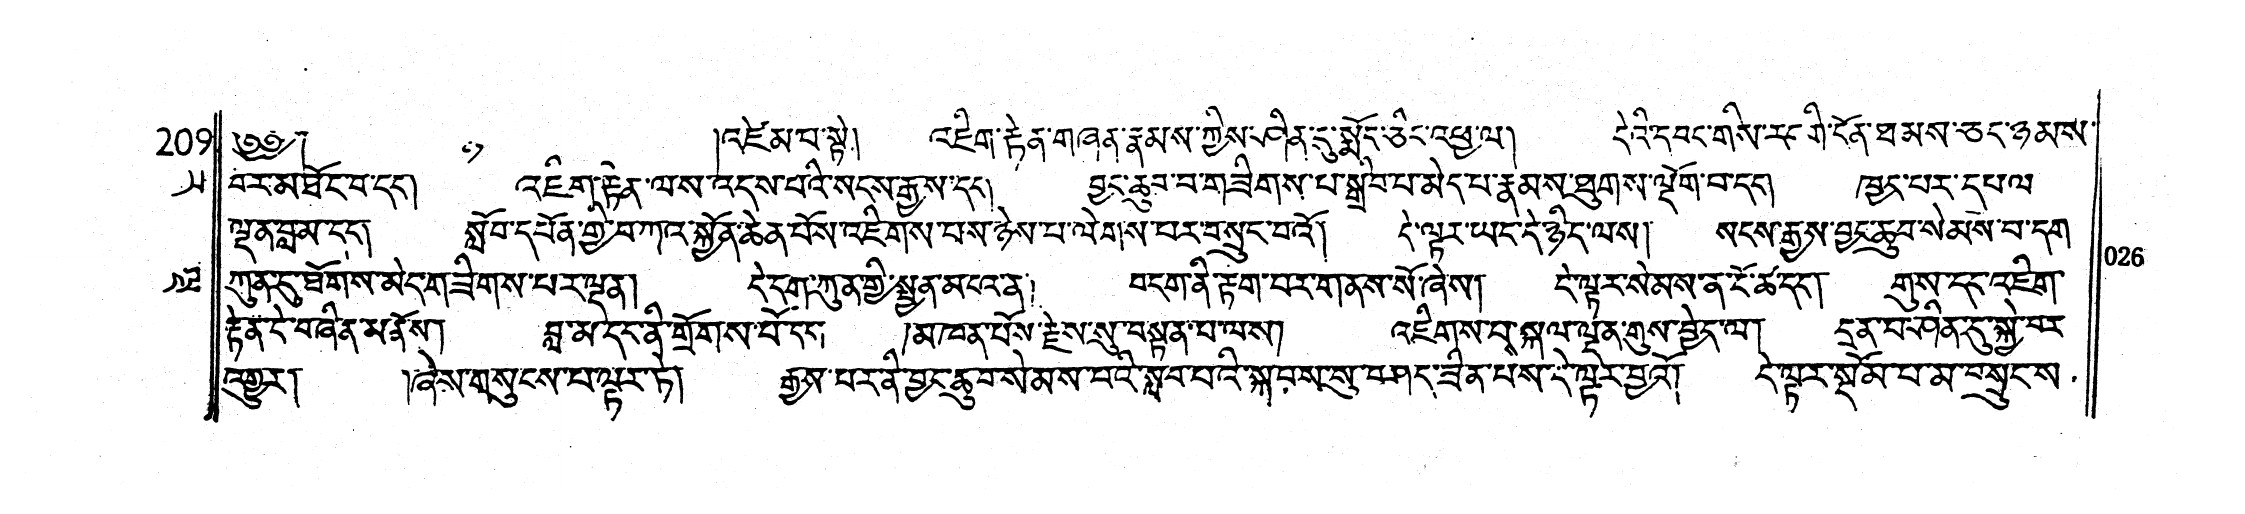 209 ༄༅། །འཛེམ་པ་སྟེ། འཇིག་རྟེན་གཞན་རྣམས་ཀྱིས་བཞིན་དུ་སྨོད་ཅིང་འཕྱ་ལ། དེའི་དབང་གིས་རང་གི་དོན་ཐམས་ཅད་ཉམས་
པར་མ་ཐོང་བ་དང། འཇིག་རྟེན་ལས་འདས་པའི་སངས་རྒྱས་དང། བྱང་ཆུབ་པ་གཟིགས་པ་སྒྲིབ་པ་མེད་པ་རྣམས་ཐུགས་ལྡོག་པ་དང། ཁྱད་པར་དཔལ
ལྡན་བླམ་དང། སློབ་དཔོན་གྱི་བཀའ་སྐྱོན་ཆེན་པོས་འཇིགས་པས་ཉེས་པ་ལེགས་པར་བསྲུང་བའོ། དེ་ལྟར་ཡང་དེ་ཉིད་ལས། སངས་རྒྱས་བྱང་ཆུབ་སེམས་པ་དག
ཀུན་དུ་ཐོགས་མེད་གཟིགས་པར་ལྡན། དེ་དག་ཀུན་གྱི་སྤྱན་མངའ་ན། བདག་ནི་རྟག་པར་གནས་སོ་ཞེས། དེ་ལྟར་སེམས་ན་ངོ་ཚ་དང། གུས་དང་འཇིག
རྟེན་དེ་བཞིན་མ་ནོས། བླ་མ་དང་ནི་གྲོགས་པོ་དང། །མཁན་པོས་རྗེས་སུ་བསྟན་པ་ལས། འཇིགས་པ་སྐལ་ལྡན་གུས་བྱེད་ལ། དྲན་པ་བཞིན་དུ་སྐྱེ་བར
འགྱུར། །ཞེས་གསུངས་པ་ལྟར་ཏེ། རྒྱས་པར་ནི་བྱང་ཆུབ་སེམས་པའི་སླབ་པའི་སྐབས་སུ་བཤད་ཟིན་པས་དེ་ལྟེར་བྱའོ། དེ་ལྟར་སྡོམ་པ་མ་བསྲུངས་
026